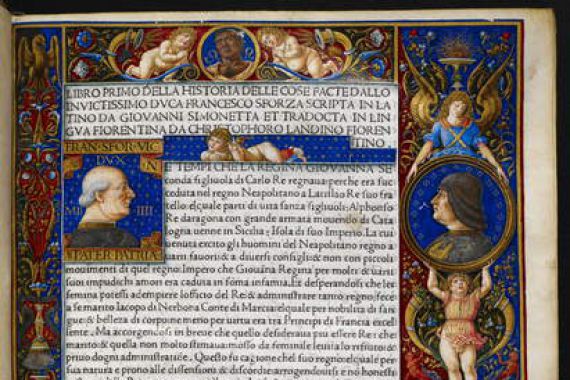 LIBRO PRIMO DELLA HISTORIA DELLE COSE FACTE DALLO
INVICTISSIMO DVCA FRANCESCO SFORZA SCRIPTA IN LA
TINO DA GIOVANNI SIMONETTA ET TRADOCTA IN LIN
GVA FIORENTINA DA CHRISTOPHORO LANDINO FIOREN
TINO.
FRAN·SFOR·VIC
DVX
N
MI IIII
PATER PATRIA
E TEMPI CHE LA REGINA GIOVANNA SE
conda figliuola di Carlo Re regnaua: perche era suc
ceduta nel regno Neapolitano a Latislao Re suo fra
tello: elquale parti di uita sanza figliuoli: Alphonso
Re daragona con grande armata mouendo di Cata
logna uenne in Sicilia: Isola di suo Imperio. La cui
uenuta excito gli huomini del Neapolitano regno a
uarii fauori: & a diuersi consigli: & non con piccoli
mouimenti di quel regno: Impero che Giouana Regina per molti & uarii
suoi impudichi amori era caduta in soma infamia. Et desperandosi che les
semina potessi adempiere lofficio del Re: & administrare tanto regno: fece
a se marito Iacopo di Nerbona Conte di Marcia: elquale per nobilita di san
gue: & belleza di corpo: ne meno per uirtu era tra Principi di Francia excel
lente. Ma accorgendosi in breue che quello desideraua piu essere Re: che
marito: & quella non molto stimaua: mosso da feminile leuita lo rifiuto: &
priuo dogni administratiõe. Questo fu cagione chel suo regno: elqual per se
sua natura e prono alle dissensioni: & discordie: arrogendouisi e no honesti